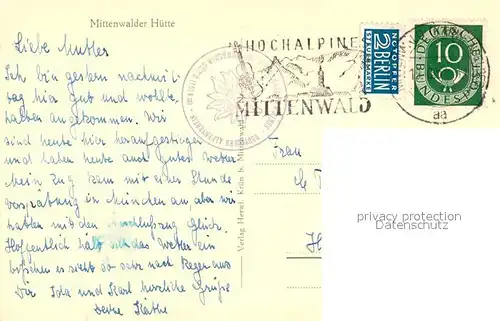 Mittenwalder Hütte
Liebe Mutter
Ich bin gestern nachmit
tag hier gut und wohlbe
halten angekommen. Wir
sind heute hier heraufgestiegen
und haben heute auch gutes Wetter
Mein Zug kam mit einer Stunde
Verspätung in München an aber wir
hatten mit dem Anschlußzug Glück.
Hoffentlich hält sich das Wetter ein
bißchen es sieht so sehr nach Regen aus
Dir Ida und Karl herzliche Grüße
Deine Käthe
HOCHALPINE
MITTENWALD
NOTOPFER
2 BERLIN
STEUERMARKE
10
DEUTSCHE BUNDESPOST
aa
Verlag Herm. Krün b. Mittenwald
Frau
privacy protection
Datenschutz